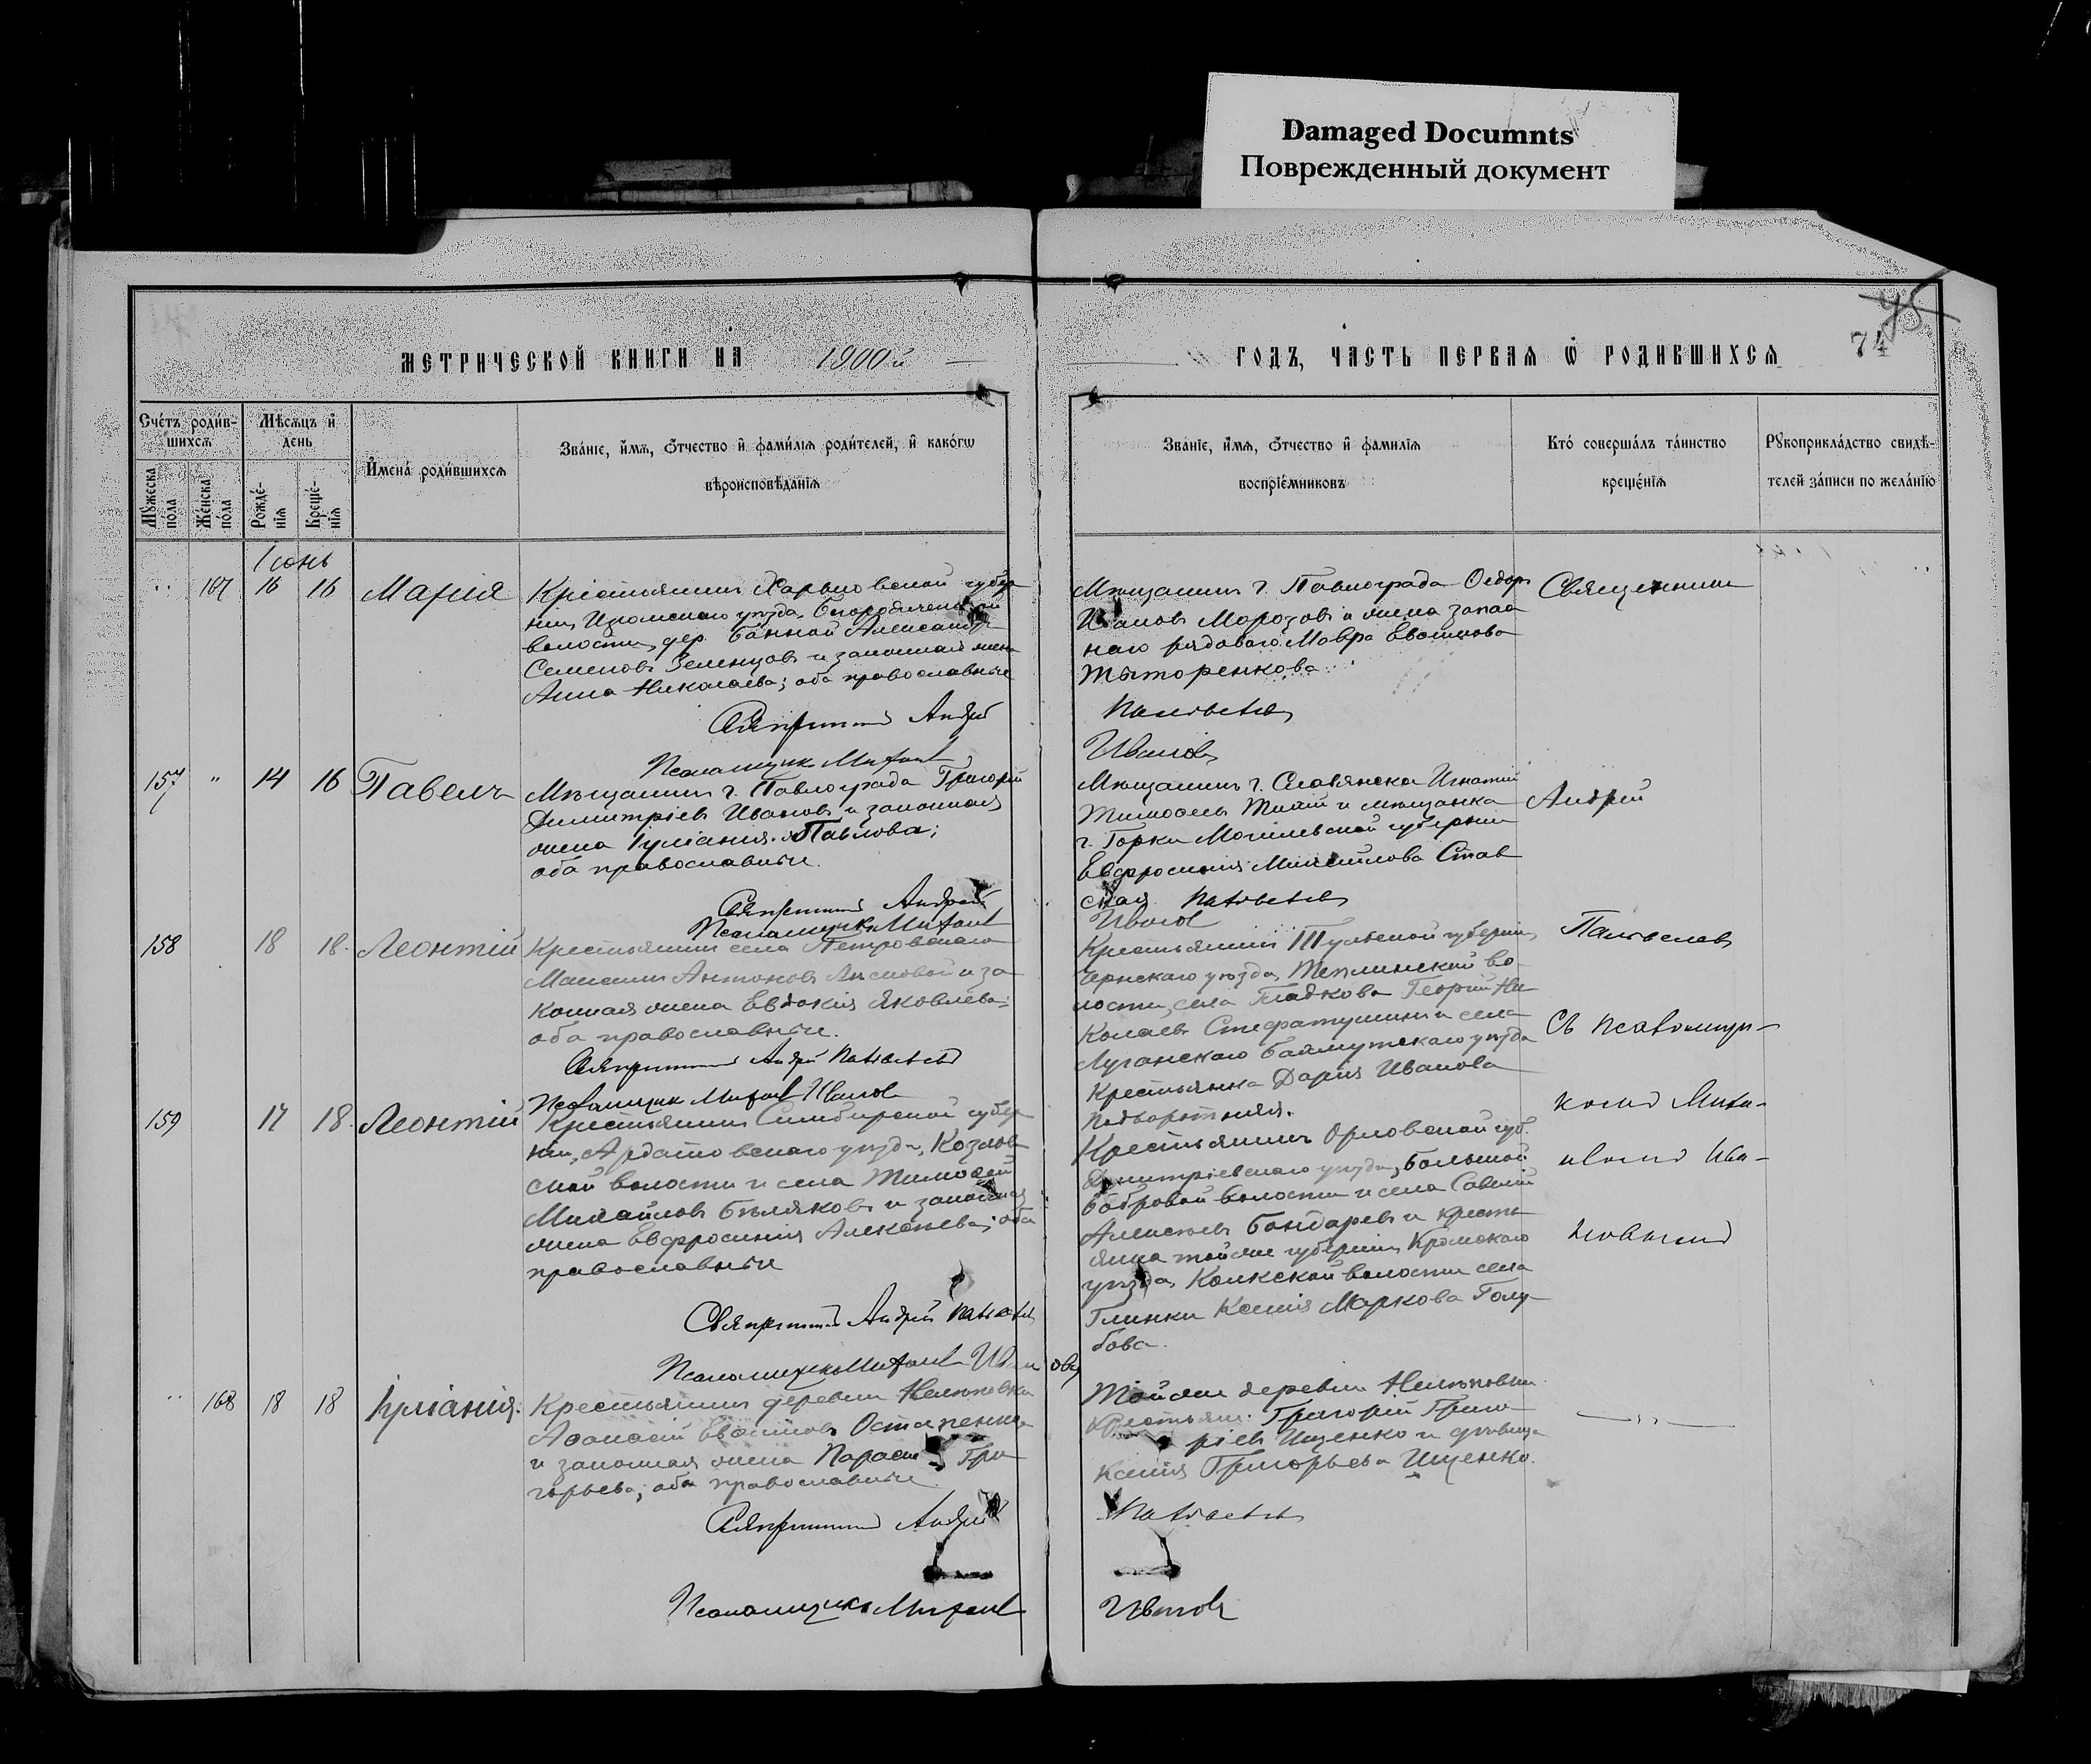 Damaged Documnts
Поврежденный документ
75
74
МЕТРИЧЕСКОЙ КНИГИ НА 1900й
ГОДЪ, ЧАСТЬ ПЕРВАЯ Ѿ РОДИВШИХСЯ
Счетъ родив-
шихся
Мѣсяцъ и
день
Мужеска
пола
Женска
пола
Рожде-
нія
Креще-
нія
Имена родившихся
Званіе, имя, отчество и фамилія родителей, и какогѡ
вѣроисповѣданія
Званіе, имя, отчество и фамилія
воспріемниковъ
Кто совершалъ таинство
крещенія
Рукоприкладство свидѣ-
телей записи по желанію
Іюнь
167 16 16 Марія
Крестьянинъ Харьковской губер
ніи, Изюмскаго уѣзда, Богородичен
волости, дер. Банной Александръ
Семеновъ Зеленцовъ и законная жена
Анна Николаева; оба православные
Священникъ Андрей
Псаломщикъ Митрофанъ
Мѣщанинъ г. Павлограда Ѳедоръ
Ивановъ Морозовъ и жена запас
наго рядового Мавра Евѳимова
Титоренкова
Иванов
Священникъ
157 " 14 16 Павелъ
Мѣщанинъ г. Павлограда Григорій
Димитріевъ Ивановъ и законная
жена Іуліанія Павлова;
оба православные.
Священникъ Андрей
Псаломщикъ Митрофанъ
Мѣщанинъ г. Славянска Игнатій
Тимоѳеевъ и мѣщанка
г. Горки Могилевской губерніи
Евфросинія Михайлова Став
ская
Иванов
Андрей
158 18 18. Леонтій
Крестьянинъ села Петровскаго
Максимъ Антоновъ Лисовой и за
конная жена Евдокія Яковлева;
оба православные.
Священникъ Андрей
Псаломщикъ Митрофанъ Иванов
Крестьянинъ Тульской губерніи,
Чернскаго уѣзда, Теплинской во
лости, села Гладкова Георгій Ни
колаевъ и села
Луганскаго Бахмутскаго уѣзда
Крестьянка Дарія Иванова
Съ псаломщи-
159 17 18. Леонтій
Крестьянинъ Симбирской губер
ніи, Ардатовскаго уѣзда, Козлов
ской волости и села Тимоѳей
Михайловъ Бѣляковъ и законная
жена Евфросинія Алексѣева; оба
православные
Священникъ Андрей
Псаломщикъ Митрофанъ Ивановъ
Крестьянинъ Орловской губ.
Димитріевскаго уѣзда, Большой
Бобровой волости и села Савелій
Алексѣевъ Бондаревъ и кресть
янка той же губерніи, Кромскаго
уѣзда, волости села
Глинки Ксенія Маркова Голу
бова.
комъ
168 18 18 Іуліанія.
Крестьянинъ деревни
Аѳанасій Евѳимовъ Остапенко
и законная жена Параск Гри
горьева; оба православные
Священникъ Андрей
Псаломщикъ Митрофанъ
Той же деревни
Крестьян. Григорій Григо
ріевъ Ищенко и дѣвица
Ксенія Григорьева Ищенко.
Иванов